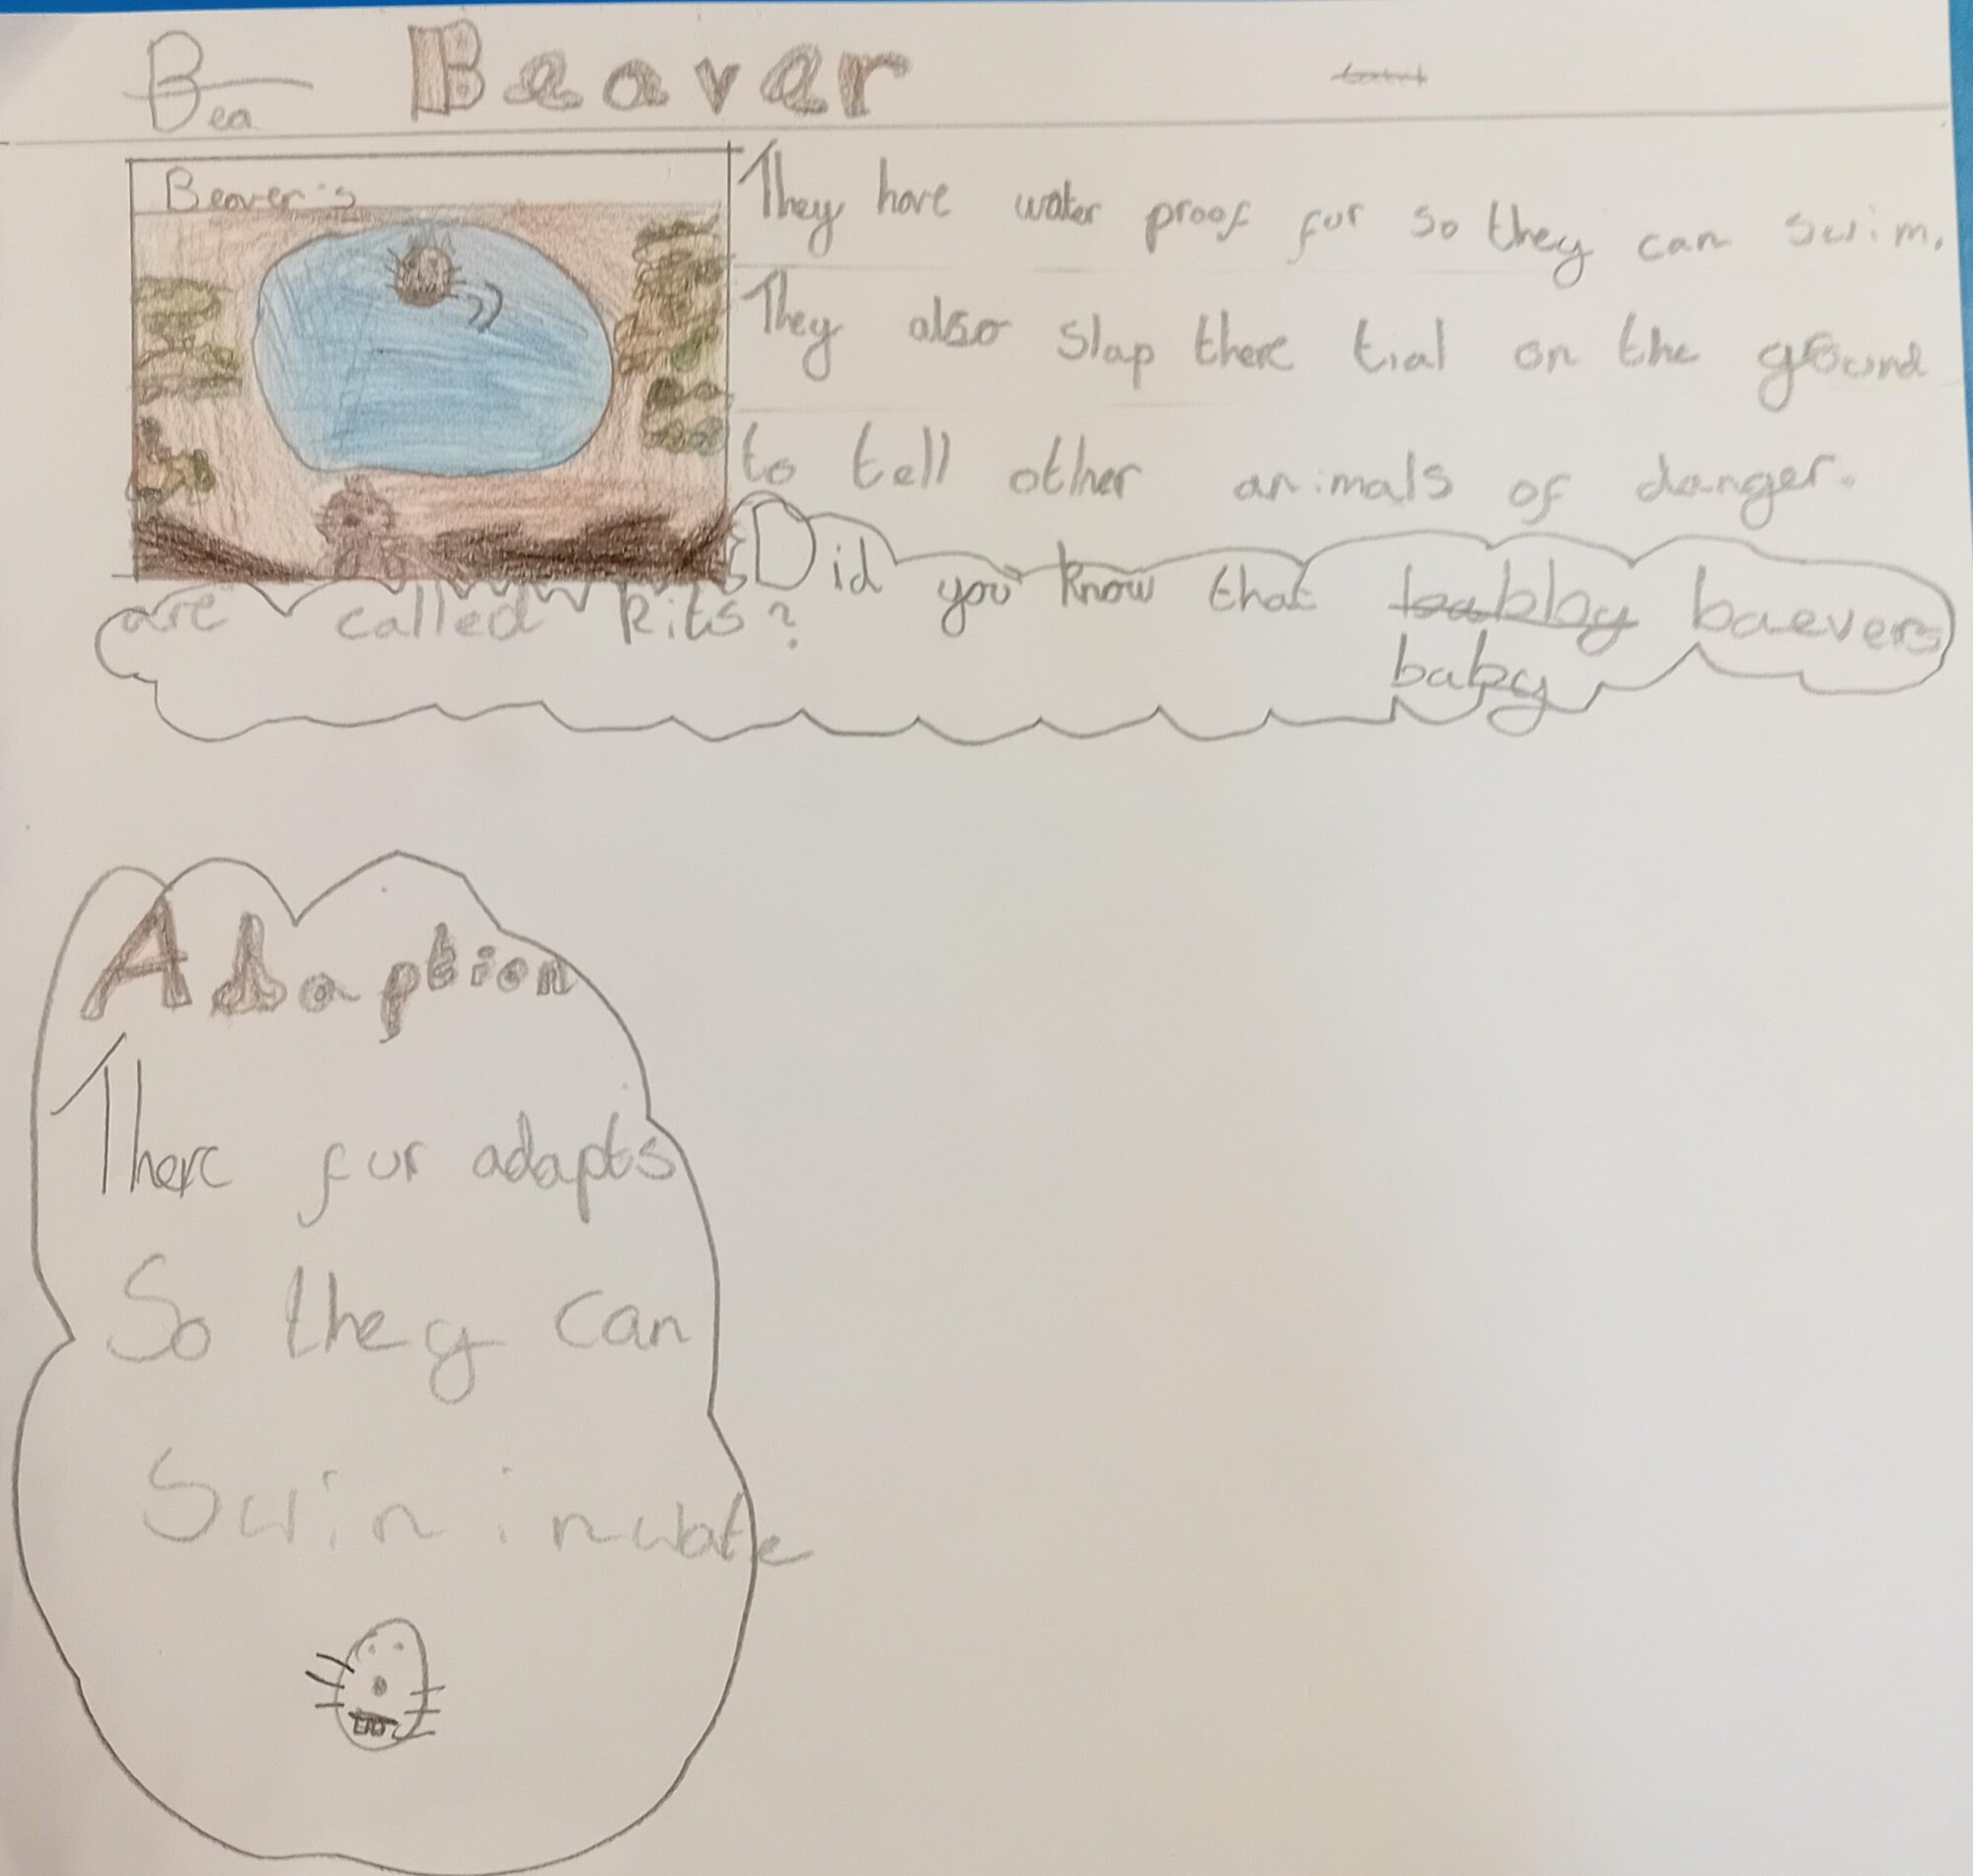 Bea Beaver
Beaver's
They have water proof fur so they can swim.
They also slap there tial on the ground
to tell other animals of danger.
Did you know that babby baevers
baby
are called kits?
Adaption
There fur adapts
So they can
Swin in wate